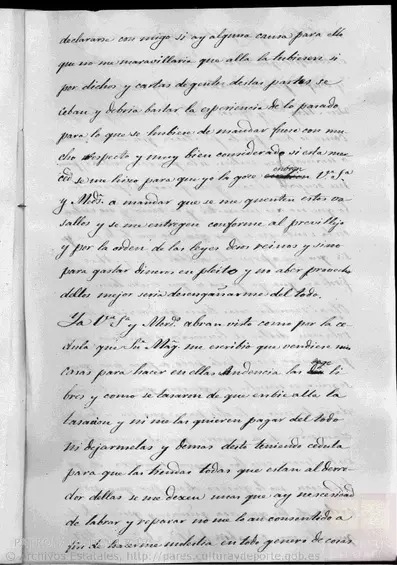 declararse con migo si ay alguna causa para ello
que no me maravillaria que alla la hubiese si
por dichos y cartas de gente destas partes se
y debria bastar la esperiencia de lo pasado
para lo que se hubiese de mandar fuese con mu-
cho respecto y muy bien considerado si esta mer-
ced se me hizo para que yo la goce Vª Sª
y Mrds. a mandar que se me quenten estos va-
sallos y se me entreguen conforme al previllejo
y por la orden de las leyes destos reinos y sino
para gastar dineros en pleito y no aber provecho
dellos mejor seria desengañarme del todo.
Ya Vª Sª y Mrds. abran visto como por la ce-
dula que Su Mag. me escribio que vendiese mis
casas para hacer en ellas Audencia las li-
bres y como se tasaron de que enbie alla la
tasacion y ni me las quieren pagar del todo
ni dejarmelas y demas desto teniendo cedula
para que las tiendas todas que estan al derre-
dor dellas se me dexen usar que ay nescesidad
de labrar y reparar no me lo an consentido a
fin de hacerme molestia en todo genero de cosas
© Archivos Estatales, http://pares.culturaydeporte.gob.es